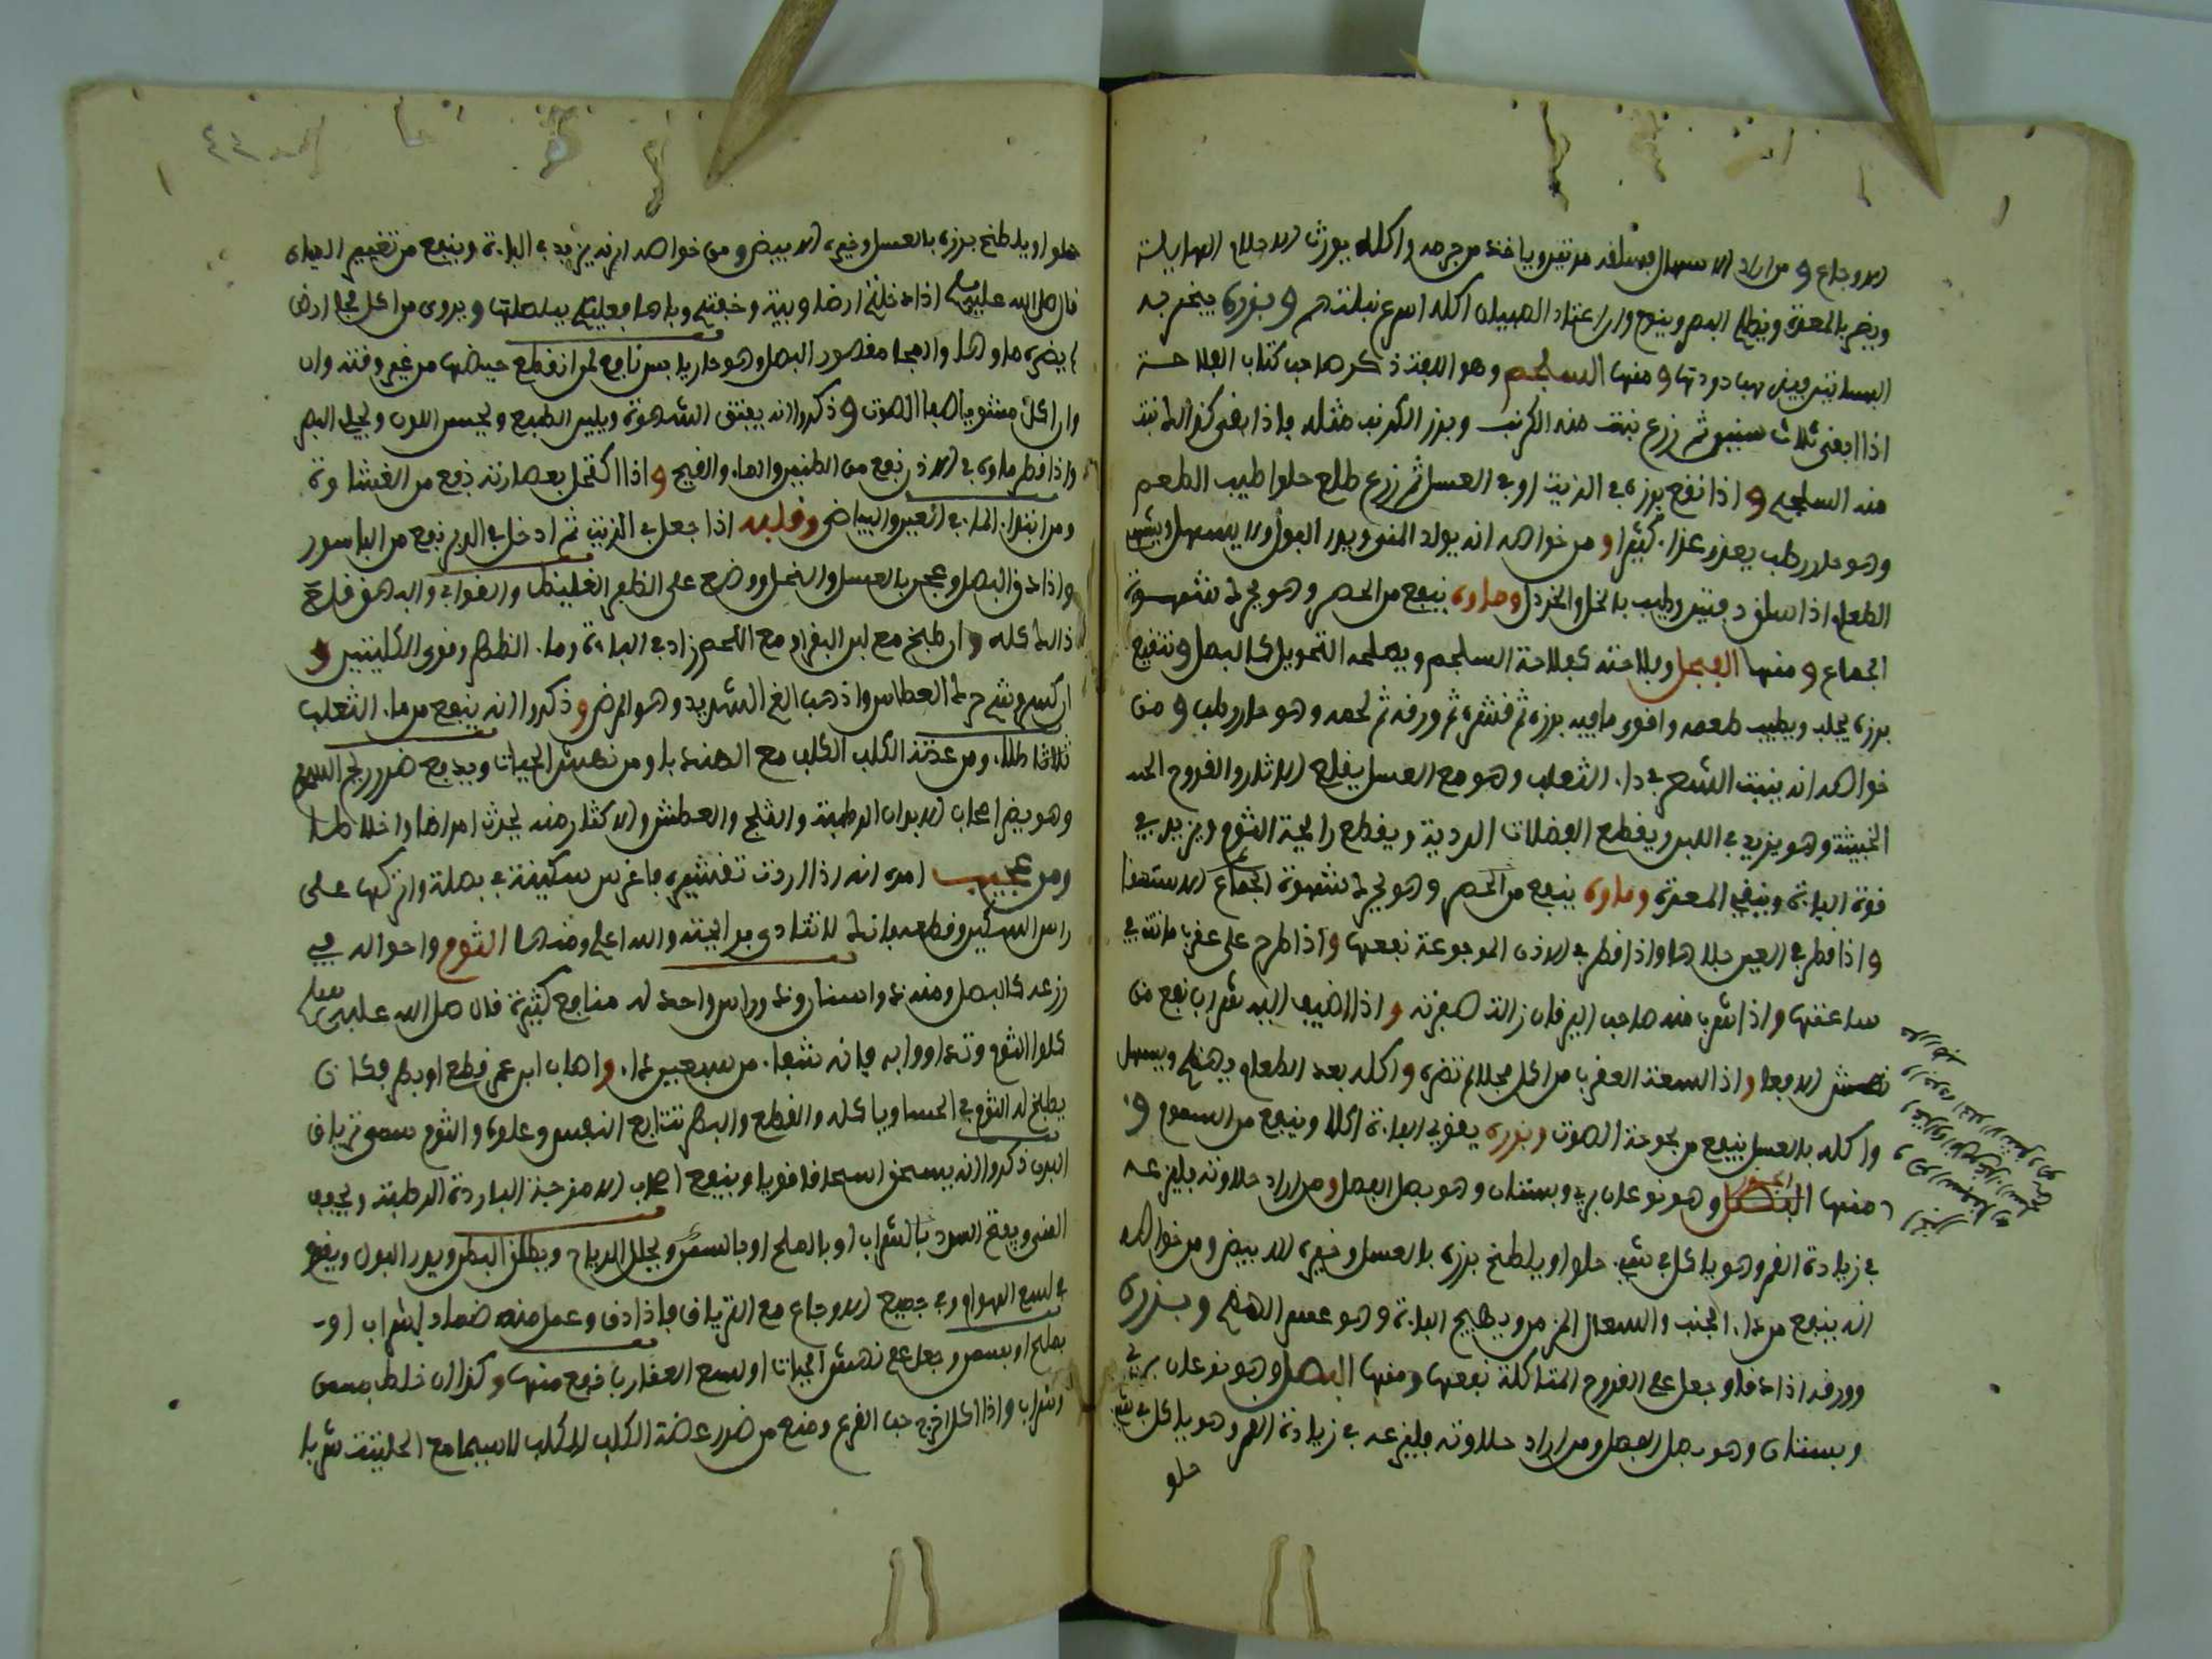 الاوجاع ومن اراد الاسهال فسلقه مرتين وياخذ من جرمه واكله يورث الاحلام الهايلة
ويضر بالمعدة ويظلم البصر وينوم وان اعتاد الصبيان اكله اسرع نباتهم وبزره يبخر به
البساتين فيقتل بها دودتها ومنها السلجم وهو اللفت ذكر صاحب كتاب الفلاحة
اذا ابقى ثلاث سنين ثم زرع نبت منه الكرنب وبزر الكرنب مثله فاذا بقي كذلك نبت
منه السلجم واذا نقع بزره في الزيت او في العسل ثم زرع طلع حلوا طيب الطعم
وهو حار رطب يغذى غذاء كثيرا ومن خواصه انه يولد المنى ويدر البول ولا يسهل ويشهى
الطعام اذا سلق دفتين وطيب بالخل والخردل وماوه ينفع من الحصر وهو يحرك شهوة
الجماع ومنها الفجل وفلاحته كفلاحة السلجم ويصلحه التحويل كالبصل وتنقيع
بزره يجلبه ويطيب طعمه واقوى ما فيه بزره ثم قشره ثم ورقه ثم لحمه وهو حار رطب ومن
خواصه انه ينبت الشعر في داء الثعلب وهو مع العسل يقلع الاثار والقروح
الخبيثة وهو يزيد في اللبن ويقطع الفضلات الردية ويقطع رايحة الثوم ويزيد في
قوة الباءة وينقي المعدة وماوه ينفع من الحصر وهو يحرك شهوة الجماع
واذا قطر في العين جلاها واذا قطر في الاذن الموجوعة نفعها واذا طرح على عقرب ماتت في
ساعتها واذا شرب منه صاحب اليرقان زالت صفرته واذا اضيف اليه شراب نفع من
نهش الافعا واذا لسعت العقرب من اكل فجلا لم تضره واكله بعد الطعام يهضم ويسهل
واكله بالعسل ينفع من بحوحة الصوت وبزره يقوي الباءة اكلا وينفع من السموم و
منها الجزر وهو نوعان بري وبستان وهو بصل الفصل ومن اراد حلاوته فليزرعه
في زيادة القمر وهو ياكل في شيء حلوا ويلطخ بزره بالعسل وخيره الابيض ومن خواصه
انه ينفع من ذات الجنب والسعال المزمن ويهيج الباءة وهو عسر الهضم وبزره
وورقه اذا دقا وجعل على القروح المتاكلة نفعها ومنها البصل وهو نوعان بري
وبستان وهو بصل الفصل ومن اراد حلاوته فليزرعه في زيادة القمر وهو ياكل في شيء
حلو
حلوا ويلطخ بزره بالعسل وخيره الابيض ومن خواصه انه يزيد في الباءة وينفع من تغيير المياه
قال صلى الله عليه وسلم اذا دخلتم ارضا وبية وخفتم وباها فعليكم ببصلها ويروى من اكل فحا ارض
لم يضره ماوها والفحا مقصور البصل وهو حار يابس نافع لمن انقطع حيضها من غير وقته وان
وان اكل مشويا صفا الصوت وذكروا انه يفتق الشهوة ويلين الطبع ويحسن اللون ويجلي البصر
واذا قطر ماوه في الاذن نفع من الطنين والماء والقيح واذا اكتحل بعصارته نفع من الغشاوة
ومن ابتداء الماء في العين والبياض وقلبه اذا جعل في الزيت ثم ادخل في الدبر نفع من الباسور
واذا دق البصل وعجن بالعسل والخل ووضع على الظفر الغليظ والقوابي والبهق قلع
ذالك كله وان طبخ مع لبن البقر او مع اللحم زاد في الباءة وماء الظهر وقوى الكليتين و
ان كسر وشم حرك العطاس واذهب الغم الشديد وهو المرض وذكروا انه ينفع من داء الثعلب
ثلاثا طلاء ومن عضة الكلب الكلب مع الهندبا ومن نهش الحيات ويدفع ضرر ريح السموم
وهو يضر اصحاب الابدان الرطبة والثلج والعطش والاكثار منه يحدث امراضا واخلاطا
ومن عجيب امره انه اذا اردت تقشيره فاغرس سكينة في بصلة واتركها على
راس السكين وقطعه فانك لا تتاذى برايحته والله اعلم ومنها الثوم واحواله في
زرعه كالبصل ومنه ذو اسنان ومنه ذو راس واحد له منافع كثيرة قال صلى الله عليه وسلم
كلوا الثوم وتداووا به فانه شفاء من سبعين داء واصاب ابن عمر قطع او بهر فكان
يطبخ له الثوم في الحسا وياكله والقطع والبهر تتابع النفس وعلوه والثوم يسمى ترياق
البدن ذكروا انه يسخن اسخانا قويا وينفع اصحاب الامزجة الباردة الرطبة ويجفف
المنى ويفتح السدد بالشراب او بالملح او بالسمن ويحلل الرياح ويطلق البطن ويدر البول
في لسع الهوام وفي جميع الاوجاع مع الترياق فاذا دق وعمل منه ضماد بشراب او
بملح او بسمن وجعل على نهش الحيات او لسع العقارب نفع منها وكذا ان خلط بسمن
وشراب واذا اكل اخرج حب القرع ومنع من ضرر عضة الكلب الكلب لا سيما مع الحلتيت شربا